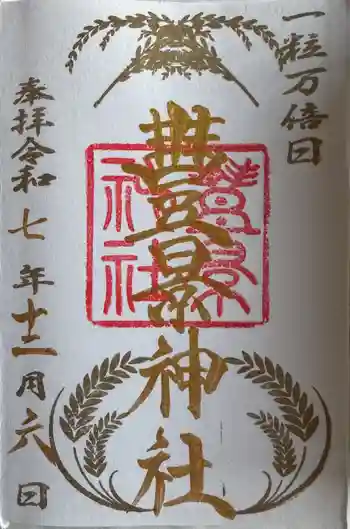 一粒万倍日
豊景神社
奉拝令和七年十二月六日